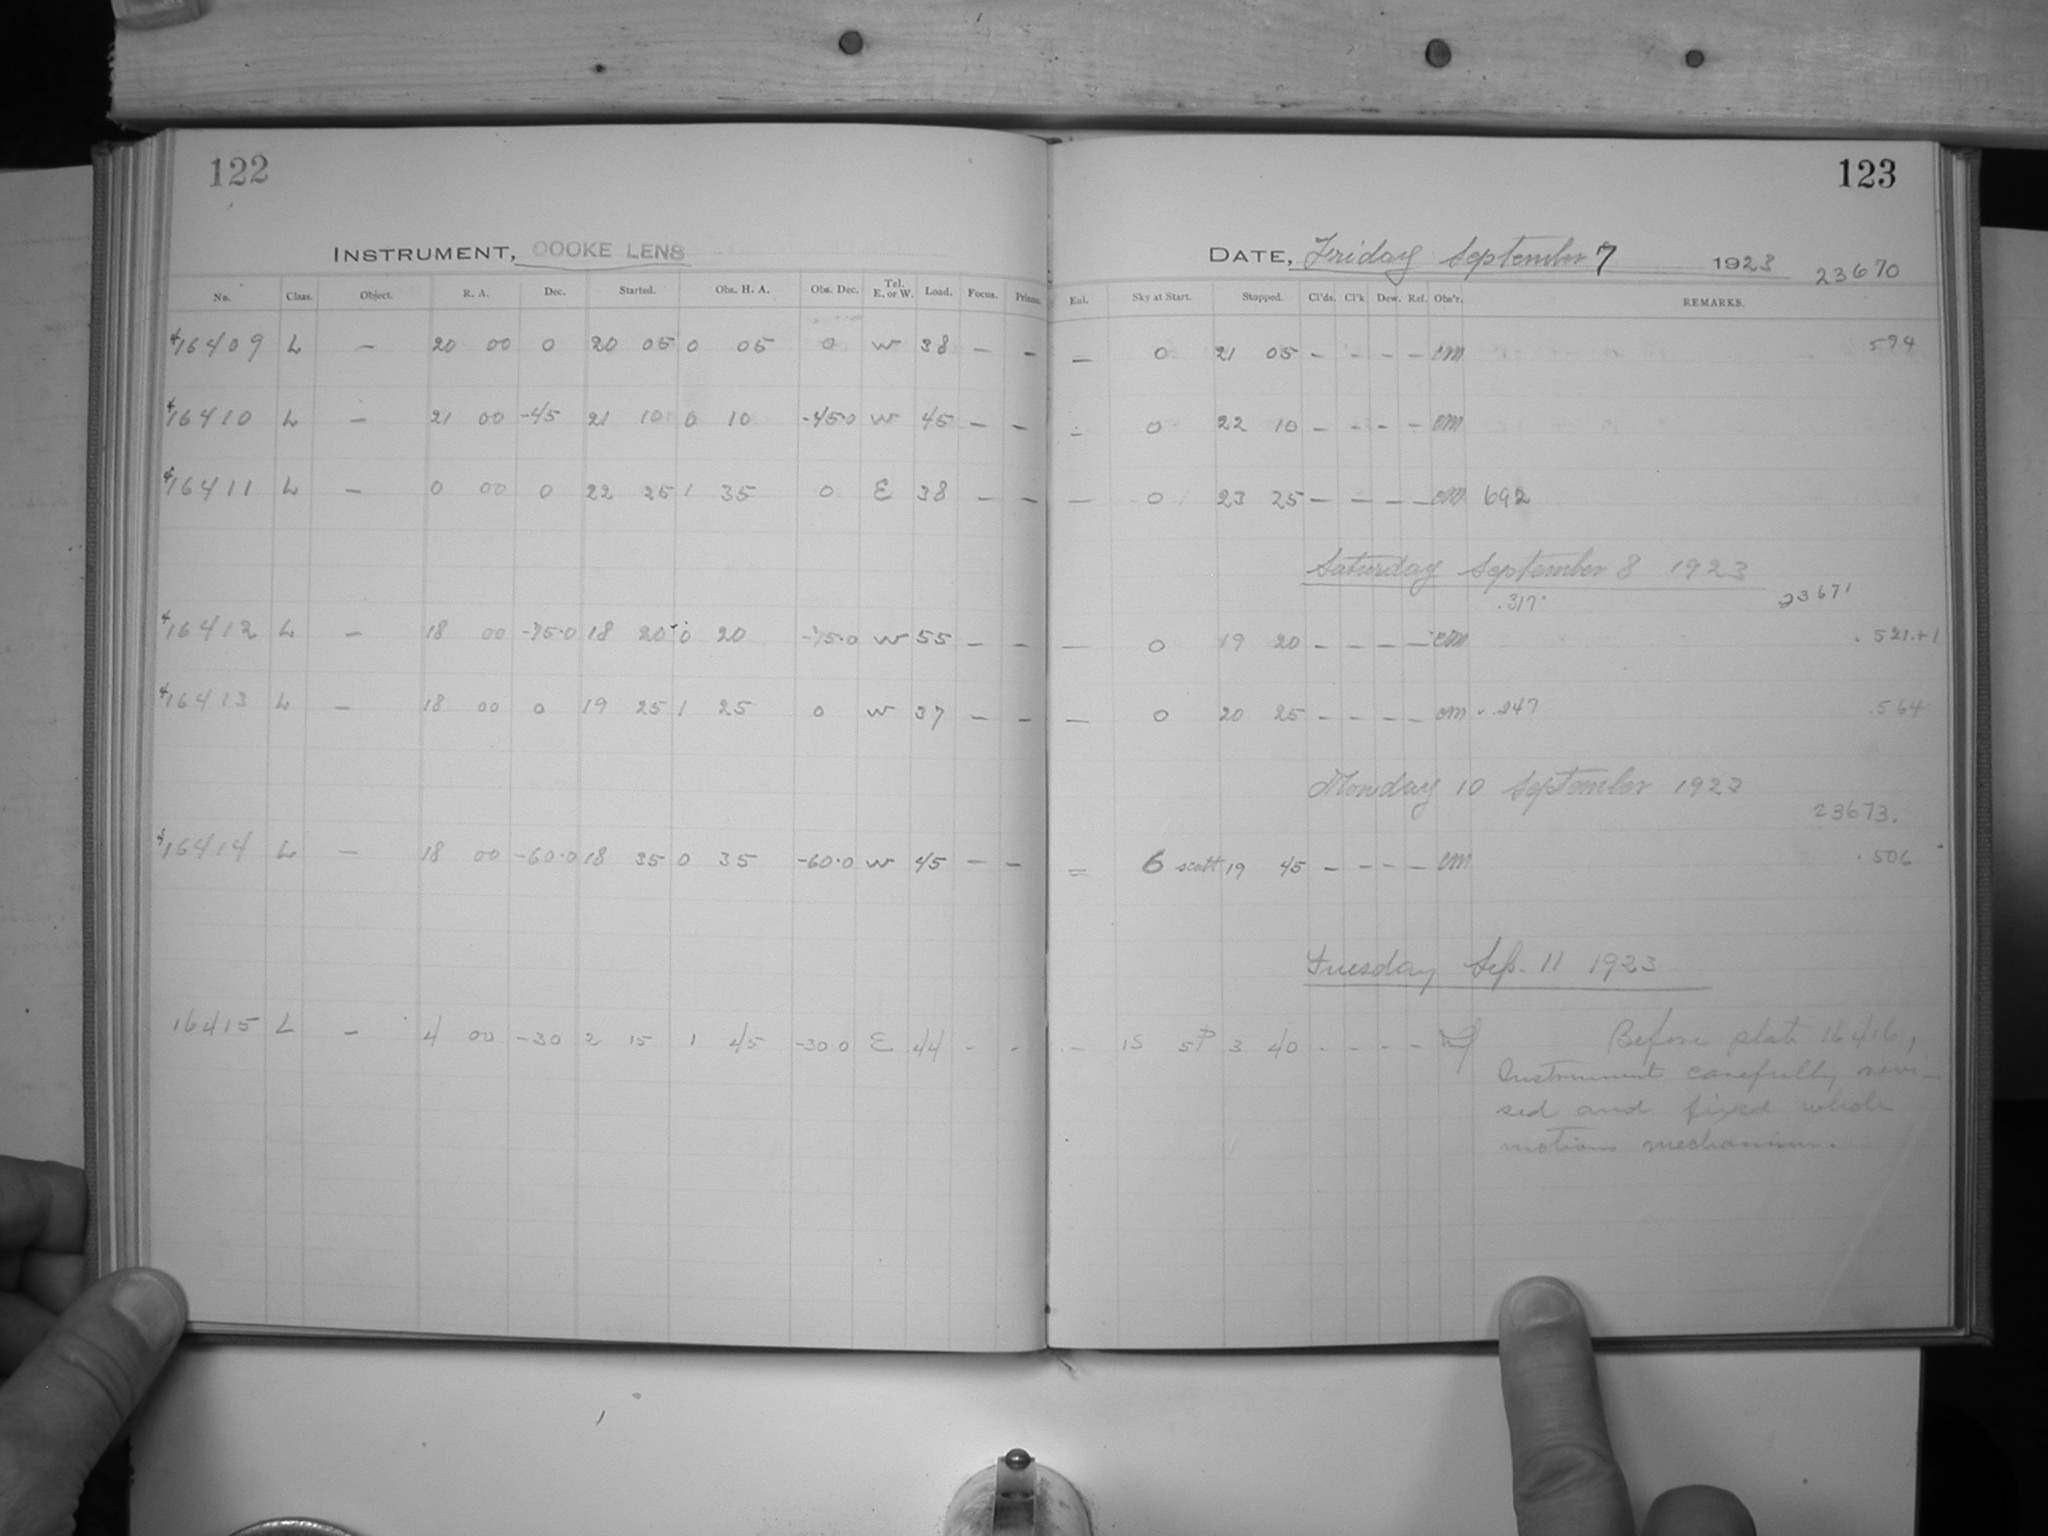 122
123
INSTRUMENT, COOKE LENS
DATE, Friday September 7 1923 23670
No. Class. Object. R. A. Dec. Started. Obs. H. A. Obs. Dec. Tel. E. or W. Load. Focus. Prisms. Eal. Sky at Start. Stopped. Cl'ds. Cl'k Dew. Ref. Obs'r. REMARKS.
16409 L – 20 00 0 20 05 0 05 0 W 38 – – – 0 21 05 – – – – CM 594
16410 L – 21 00 -45 21 10 0 10 -45·0 W 45 – – – 0 22 10 – – – – CM
16411 L – 0 00 0 22 25 1 35 0 E 38 – – – 0 23 25 – – – – CM 692
Saturday September 8 1923
.317 23671
16412 L – 18 00 -75·0 18 20 0 20 -75·0 W 55 – – – 0 19 20 – – – – CM .521.+1
16413 L – 18 00 0 19 25 1 25 0 W 37 – – – 0 20 25 – – – – CM .247 .564
Monday 10 September 1923
23673.
16414 L – 18 00 -60·0 18 35 0 35 -60·0 W 45 – – = 6 scatt 19 45 – – – – CM .506
Tuesday Sep. 11 1923
16415 L – 4 00 -30 2 15 1 45 -30·0 E 44 – – – 1S 5P 3 40 – – – – Before plate 16416,
Instrument carefully revi-
sed and fixed whole
motion mechanism.